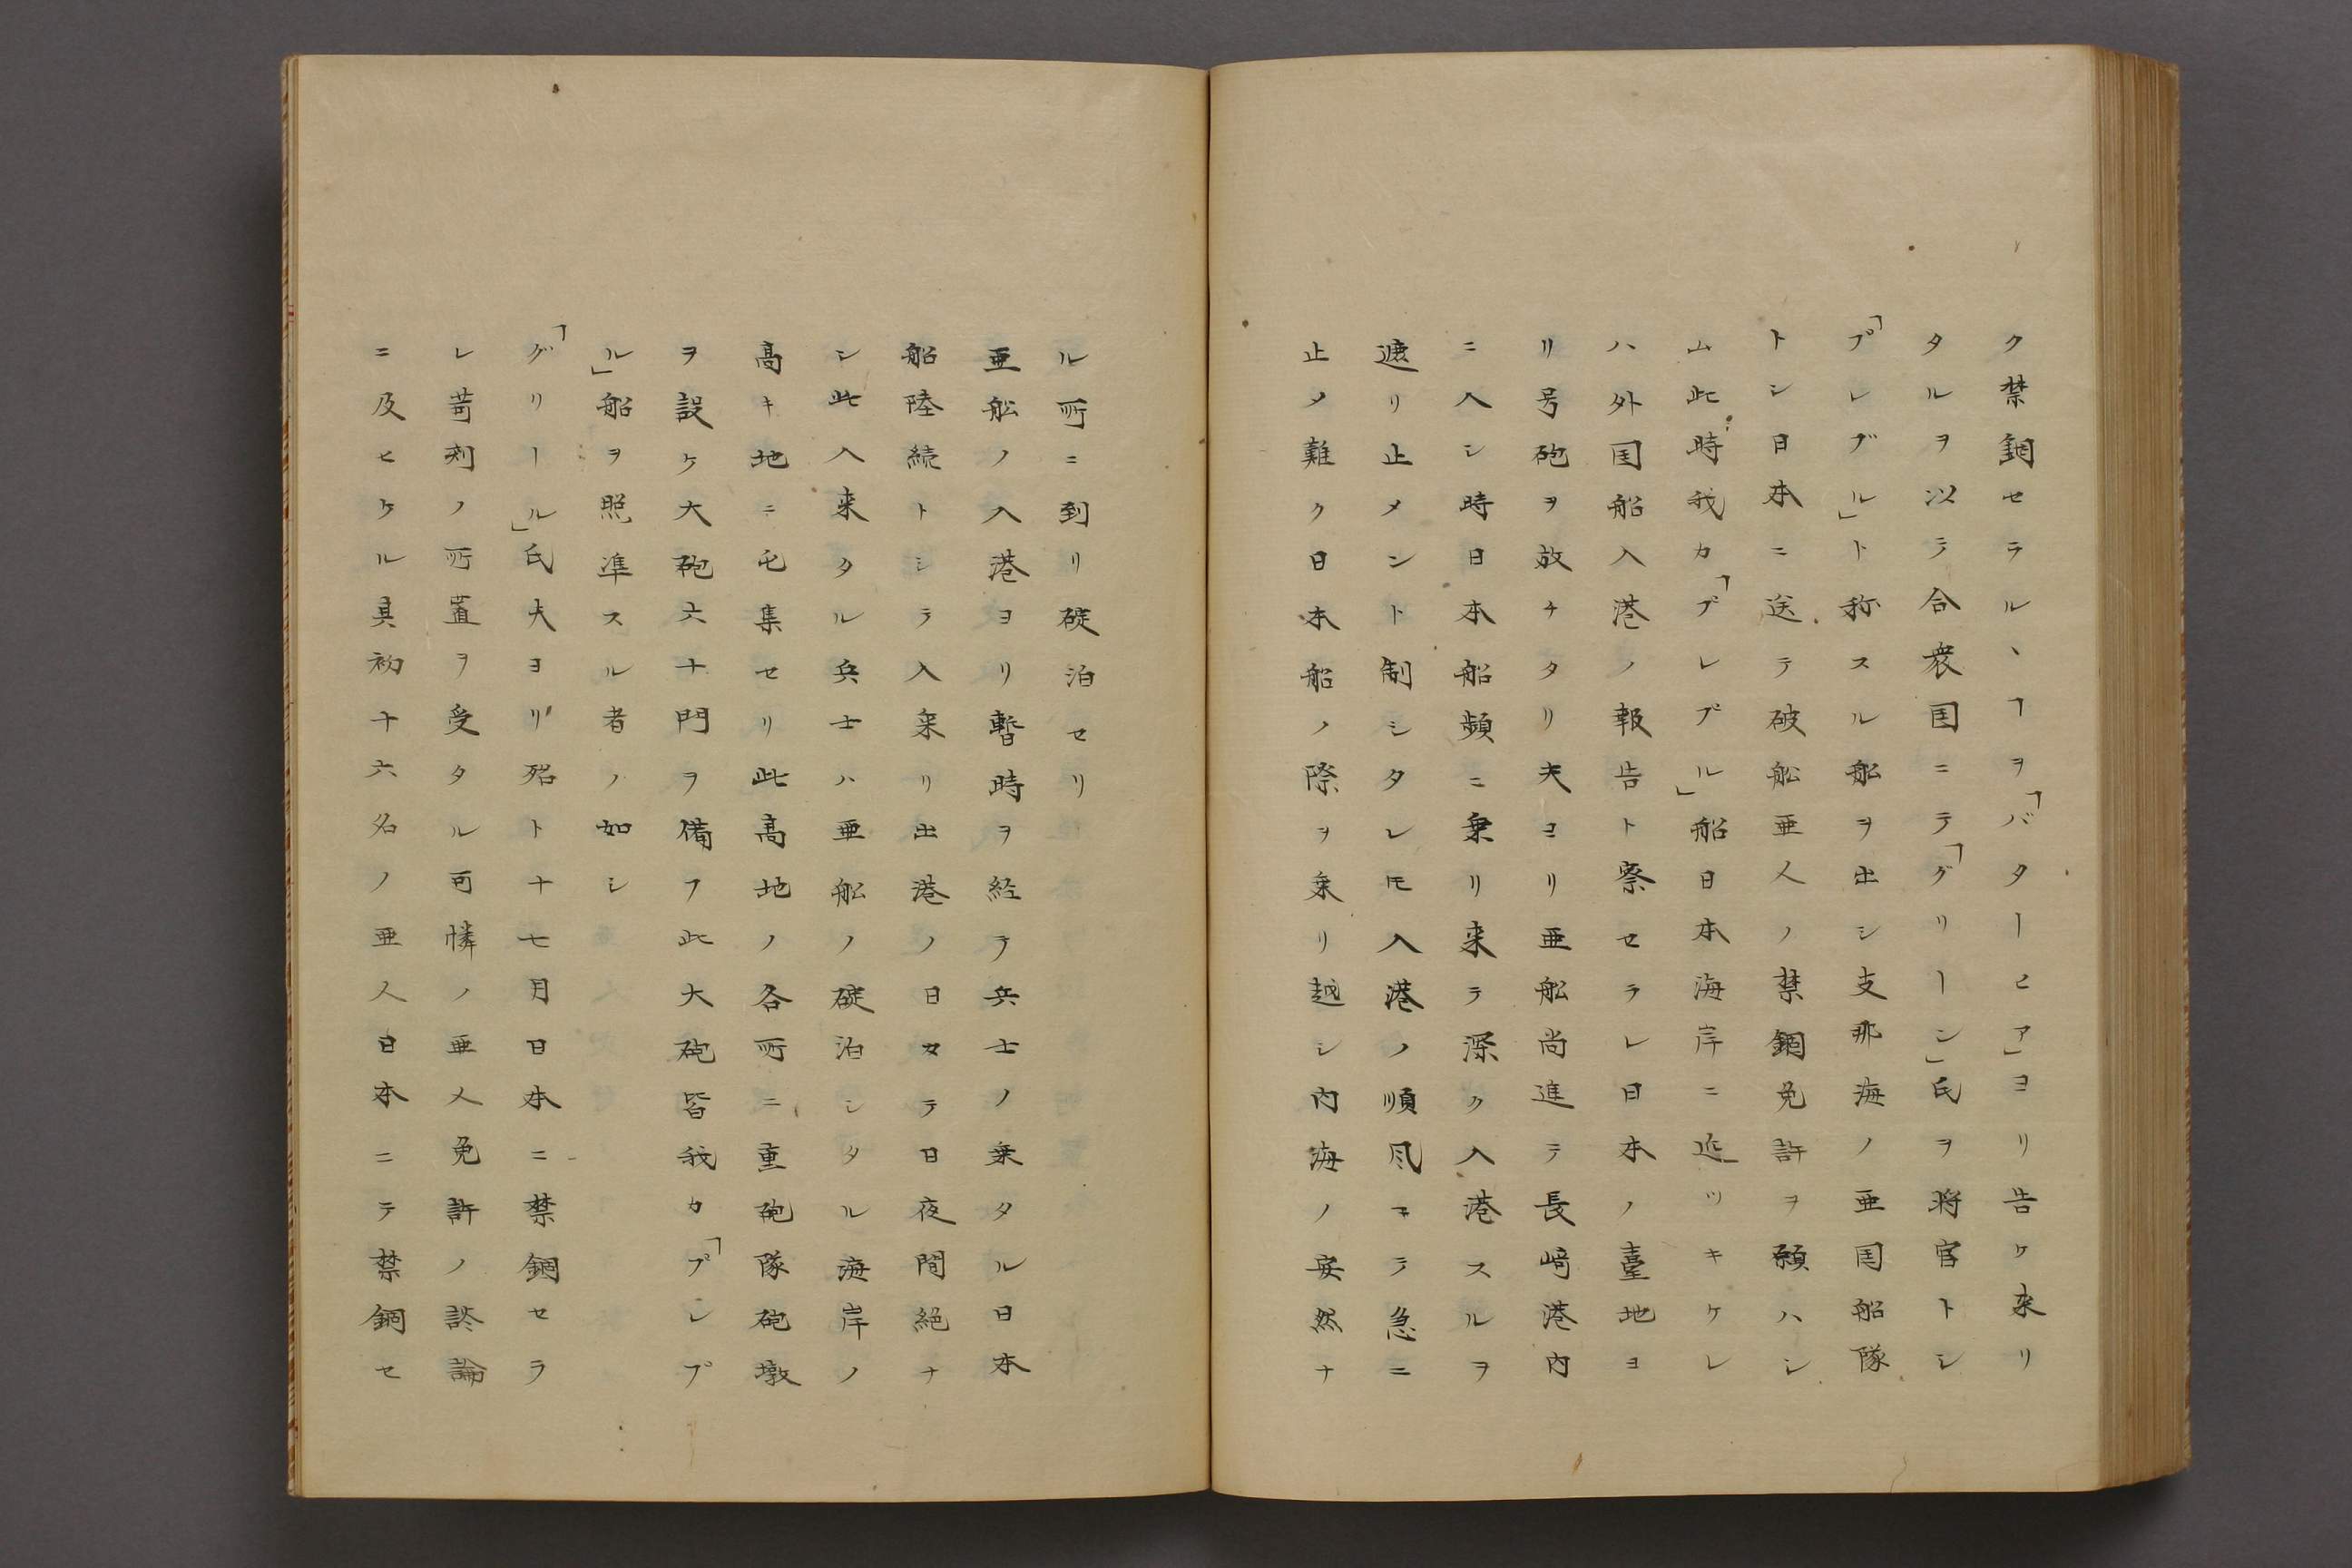 ク禁錮セラルヽヿヲ「バタービア」ヨリ告ケ来リ
タルヲ以テ合衆国ニテ「グリーン」氏ヲ将官トシ
「プレブル」ト称スル船ヲ出シ支那海ノ亜国船隊
トシ日本ニ送テ破船亜人ノ禁錮免許ヲ願ハシ
ム此時我カ「プレブル」船日本海岸ニ近ツキケレ
ハ外国船入港ノ報告ト察セラレ日本ノ臺地ヨ
リ号砲ヲ放チタリ夫ヨリ亜船尚進テ長﨑港内
ニ入シ時日本船頻ニ乗リ来テ深ク入港スルヲ
遮リ止メント制シタレ𪜈入港ノ順風ニテ急ニ
止メ難ク日本船ノ際ヲ乗リ越シ内海ノ安然ナ
ル所ニ到リ碇泊セリ
亜船ノ入港ヨリ暫時ヲ経テ兵士ノ乗タル日本
船陸続トシテ入来リ出港ノ日マテ日夜間絶ナ
シ此入来タル兵士ハ亜船ノ碇泊シタル海岸ノ
高キ地ニ屯集セリ此高地ノ各所ニ重砲隊砲墩
ヲ設ケ大砲六十門ヲ備フ此大砲皆我カ「プレブ
ル」船ヲ照準スル者ノ如シ
「グリール」氏夫ヨリ殆ト十七月日本ニ禁錮セラ
レ苛刻ノ所置ヲ受タル可憐ノ亜人免許ノ談論
ニ及ヒケル其初十六名ノ亜人日本ニテ禁錮セ